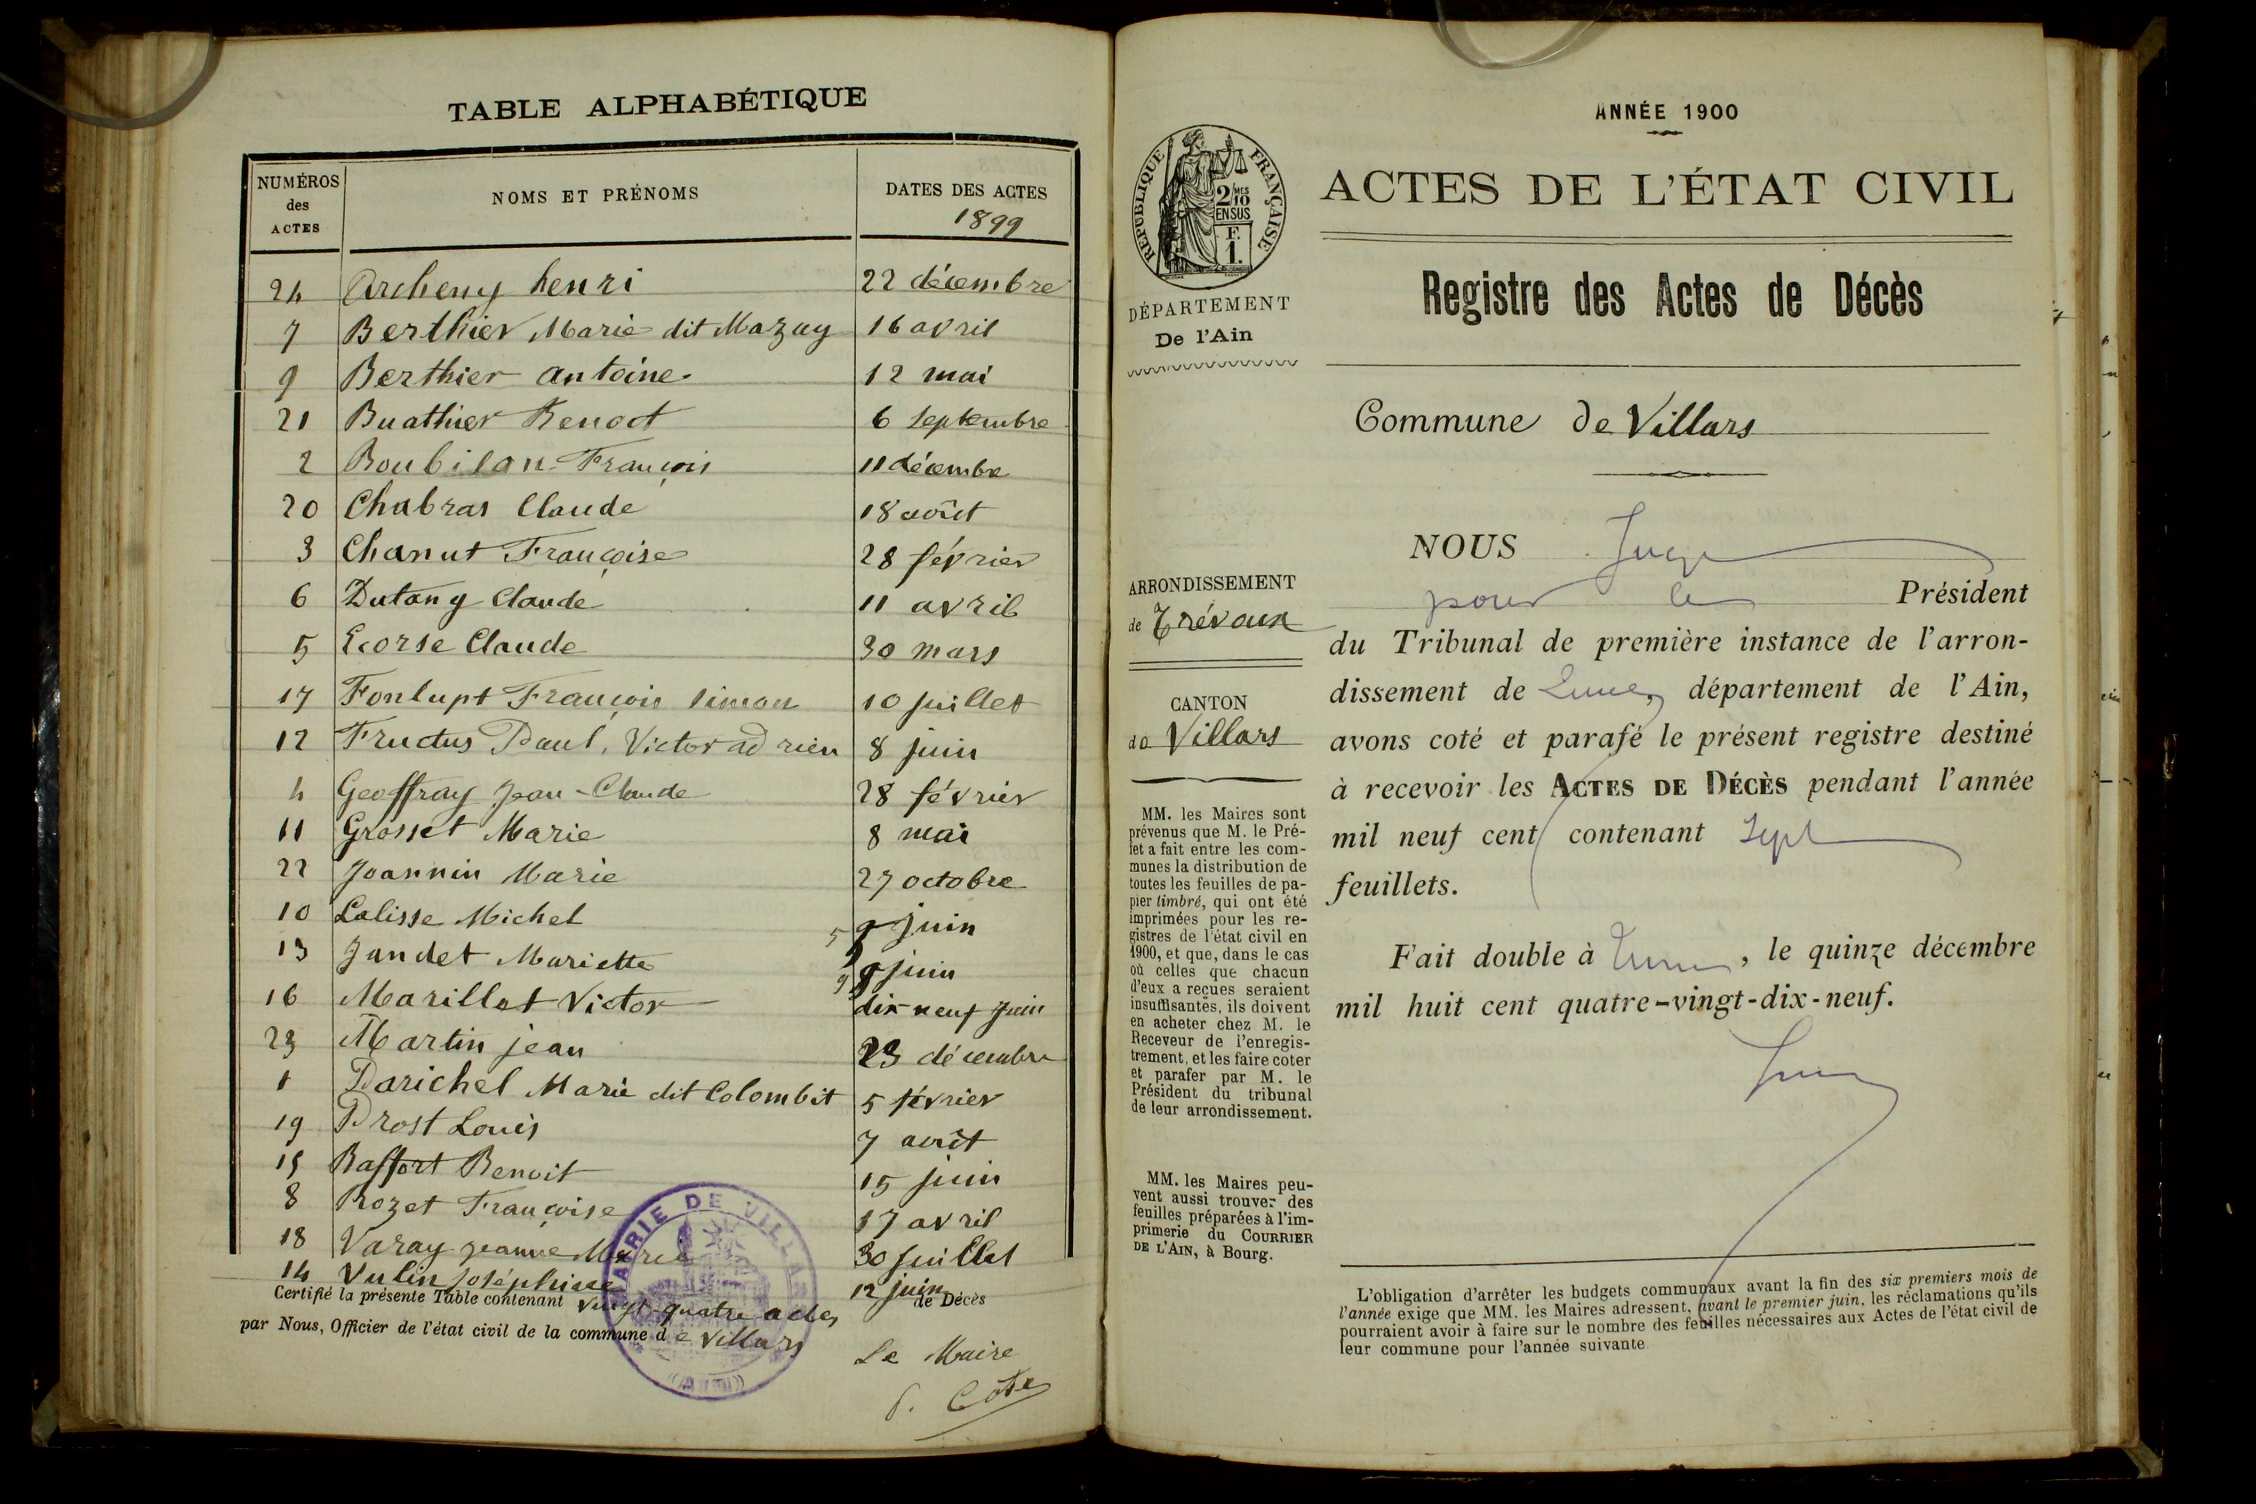 TABLE ALPHABÉTIQUE
NUMÉROS des ACTES
NOMS ET PRÉNOMS
DATES DES ACTES
1899
24 Archeny henri 22 décembre
7 Berthier Marie dit Mazuy 16 avril
9 Berthier antoine 12 mai
21 Buathier Benoot 6 Septembre
2 Boubilan François 11 décembre
20 Chabras Claude 18 août
3 Chanut Françoise 28 février
6 Dutang Claude 11 avril
5 Ecorse Claude 30 mars
17 Fonlupt François Simon 10 juillet
12 Fructus Paul, Victor adrien 8 juin
4 Geoffray Jean-Claude 28 février
11 Grosset Marie 8 mai
22 Joannin Marie 27 octobre
10 Lalisse Michel 5 juin
13 Jandet Mariette 9 juin
16 Marillat Victor dix-neuf juin
23 Martin jean 23 décembre
1 Parichel Marie dit Colombet 5 février
19 Prost Louis 7 août
15 Raffort Benoit 15 juin
8 Rozet Françoise 17 avril
18 Varay Jeanne Marie 30 juillet
14 Vulin Joséphine 12 juin
Certifié la présente Table contenant vingt-quatre actes de Décès
par Nous, Officier de l'état civil de la commune de Villars
MAIRIE DE VILLARS
(AIN)
Le Maire
Côte
ANNÉE 1900
RÉPUBLIQUE FRANÇAISE
2/10 MES
EN SUS
F.
1.
ACTES DE L'ÉTAT CIVIL
Registre des Actes de Décès
DÉPARTEMENT
De l'Ain
Commune de Villars
ARRONDISSEMENT
de Trévoux
CANTON
de Villars
MM. les Maires sont
prévenus que M. le Pré-
fet a fait entre les com-
munes la distribution de
toutes les feuilles de pa-
pier timbré, qui ont été
imprimées pour les re-
gistres de l'état civil en
1900, et que, dans le cas
où celles que chacun
d'eux a reçues seraient
insuffisantes, ils doivent
en acheter chez M. le
Receveur de l'enregis-
trement, et les faire coter
et parafer par M. le
Président du tribunal
de leur arrondissement.
MM. les Maires peu-
vent aussi trouver des
feuilles préparées à l'im-
primerie du COURRIER
DE L'AIN, à Bourg.
NOUS Juge
pour le Président
du Tribunal de première instance de l'arron-
dissement de département de l'Ain,
avons coté et parafé le présent registre destiné
à recevoir les ACTES DE DÉCÈS pendant l'année
mil neuf cent contenant Sept
feuillets.
Fait double à , le quinze décembre
mil huit cent quatre-vingt-dix-neuf.
L'obligation d'arrêter les budgets communaux avant la fin des six premiers mois de
l'année exige que MM. les Maires adressent, avant le premier juin, les réclamations qu'ils
pourraient avoir à faire sur le nombre des feuilles nécessaires aux Actes de l'état civil de
leur commune pour l'année suivante